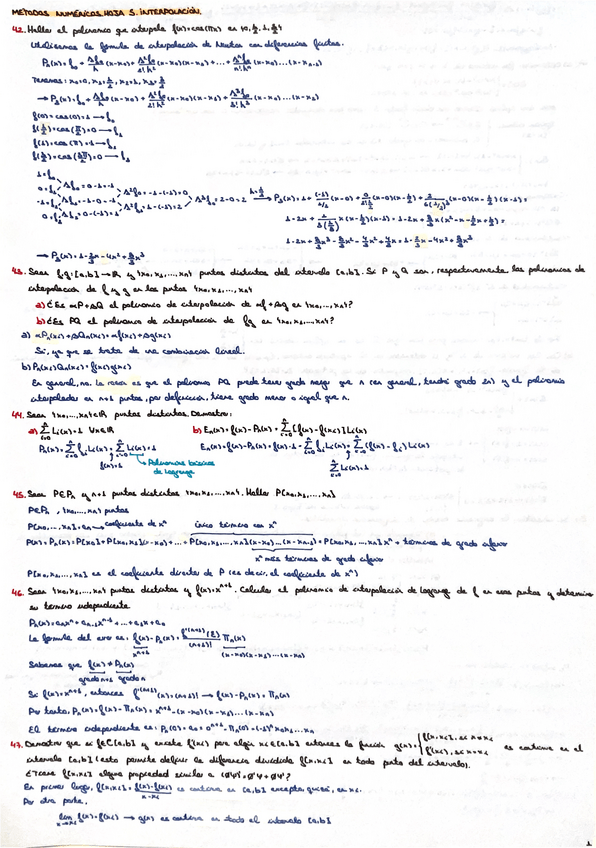 MÉTODOS NUMÉRICOS HOJA 5. INTERPOLACIÓN.
42. Hallar el polinomio que interpola f(x)=cos(πx) en {0, 1/2, 1, 3/2}
Utilizamos la fórmula de interpolación de Newton con diferencias finitas.
Pn(x)= f₀ + Δf₀/h (x-x₀) + Δ²f₀/2!h² (x-x₀)(x-x₁) + ... + Δⁿf₀/n!hⁿ (x-x₀)...(x-xₙ₋₁)
Tenemos: x₀=0, x₁=1/2, x₂=1, x₃=3/2
→ P₃(x)= f₀ + Δf₀/h (x-x₀) + Δ²f₀/2!h² (x-x₀)(x-x₁) + Δ³f₀/3!h³ (x-x₀)...(x-x₂)
f(0)=cos(0)=1 → f₀
f(1/2)=cos(π/2)=0 → f₁
f(1)=cos(π)=-1 →
f(3/2)=cos(3π/2)=0 →
1=f₀
0=f₁ Δf₀=0-1=-1
-1=f₂ Δf₁=-1-0=-1 Δ²f₀=-1-(-1)=0
0=f₃ Δf₂=0-(-1)=1 Δ²f₁=1-(-1)=2 Δ³f₀=2-0=2
h=1/2 → P₃(x)=1+ (-1)/(1/2) (x-0) +
1-2x+ 8/3 x(x²-x-1/2x+1/2)=
→ P₃(x)=1-2/3x-4x²+8/3x³
43. Sean f,g:[a,b]→ℝ y {x₀,x₁,...,xₙ} puntos distintos del intervalo [a,b]. Si P y Q son, respectivamente, los polinomios de
interpolación de f y g en los puntos {x₀,x₁,...,xₙ}
a) ¿Es αP+βQ el polinomio de interpolación de αf+βg en {x₀,...,xₙ}?
b) ¿Es PQ el polinomio de interpolación de fg en {x₀,...,xₙ}?
a) αPₙ(xᵢ)+βQₙ(xᵢ)=αf(xᵢ)+βg(xᵢ)
Sí, ya que se trata de una combinación lineal.
b) Pₙ(xᵢ)Qₙ(xᵢ)=f(xᵢ)g(xᵢ)
En general, no. La razón es que el polinomio PQ puede tener grado mayor que n (en general, tendrá grado 2n) y el polinomio
interpolador en n+1 puntos, por definición, tiene grado menor o igual que n.
44. Sean {x₀,...,xₙ}∈ℝ puntos distintos. Demostrar:
a) Σ Lᵢ(x)=1 ∀x∈ℝ b) Eₙ(x)=f(x)-Pₙ(x)= Σ [f(x)-f(xᵢ)]Lᵢ(x)
Pₙ(x)= Σ fᵢLᵢ(x) = Σ Lᵢ(x)=1 Eₙ(x)=f(x)-Pₙ(x)=f(x)·1- Σ fᵢLᵢ(x) = Σ (f(x)-fᵢ)Lᵢ(x)
f(x)=1 → Polinomios básicos de Lagrange Σ Lᵢ(x)=1
45. Sean P∈Pₙ y n+1 puntos distintos {x₀,x₁,...,xₙ}. Hallar P[x₀,x₁,...,xₙ]
P∈Pₙ, {x₀,...,xₙ} puntos
P[x₀,...,xₙ]=aₙ → coeficiente de xⁿ único término con xⁿ
P(x)=Pₙ(x)=P[x₀]+P[x₀,x₁](x-x₀)+...+P[x₀,x₁,...,xₙ](x-x₀)...(x-xₙ₋₁)=P[x₀,x₁,...,xₙ]xⁿ+términos de grado inferior
xⁿ más términos de grado inferior
P[x₀,x₁,...,xₙ] es el coeficiente director de P (es decir, el coeficiente de xⁿ)
46. Sean {x₀,x₁,...,xₙ} puntos distintos y f(x)=xⁿ⁺¹. Calcular el polinomio de interpolación de Lagrange de f en esos puntos y determine
su término independiente
Pₙ(x)=aₙxⁿ+aₙ₋₁xⁿ⁻¹+...+a₁x+a₀
La fórmula del error es: f(x)-Pₙ(x)= f⁽ⁿ⁺¹⁾(ξ)/(n+1)! Πₙ(x)
xⁿ⁺¹ (x-x₀)(x-x₁)...(x-xₙ)
Sabemos que f(x)≠Pₙ(x)
grado n+1 grado n
Si f(x)=xⁿ⁺¹, entonces f⁽ⁿ⁺¹⁾(x)=(n+1)! → f(x)-Pₙ(x)=Πₙ(x)
Por tanto, Pₙ(x)=f(x)-Πₙ(x)=xⁿ⁺¹-(x-x₀)(x-x₁)...(x-xₙ)
El término independiente es: Pₙ(0)=a₀=0ⁿ⁺¹-Πₙ(0)=(-1)ⁿ x₀x₁...xₙ
47. Demostrar que si f∈C[a,b] y existe f'(xᵢ) para algún xᵢ∈[a,b] entonces la función g(x)= { f[x,xᵢ], si x≠xᵢ
f'(xᵢ), si x=xᵢ es continua en el
intervalo [a,b] (esto permite definir la diferencia dividida f[x,xᵢ] en todo punto del intervalo).
¿Tiene f[x,xᵢ] alguna propiedad similar a (φψ)'=φ'ψ+φψ'?
En primer lugar, f[x,xᵢ]= f(x)-f(xᵢ)/x-xᵢ es continua en [a,b] excepto, quizá, en xᵢ.
Por otra parte,
lim → g(x) es continua en todo el intervalo [a,b]
1